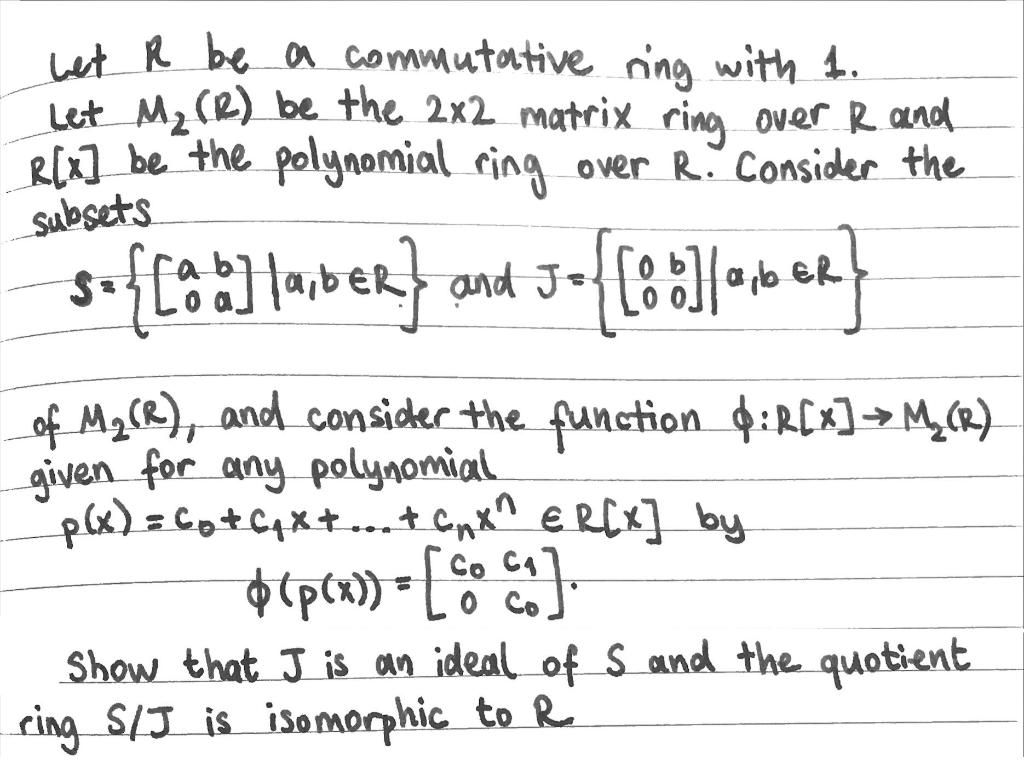 Let R be a commutative ring with 1.
Let M₂(R) be the 2x2 matrix ring over R and
R[x] be the polynomial ring over R. Consider the
subsets
S = {[a b; 0 a] | a,b ∈ R} and J = {[0 b; 0 0] | a,b ∈ R}
of M₂(R), and consider the function ϕ: R[x] → M₂(R)
given for any polynomial
p(x) = c₀ + c₁x + ... + cₙxⁿ ∈ R[x] by
ϕ(p(x)) = [c₀ c₁; 0 c₀].
Show that J is an ideal of S and the quotient
ring S/J is isomorphic to R